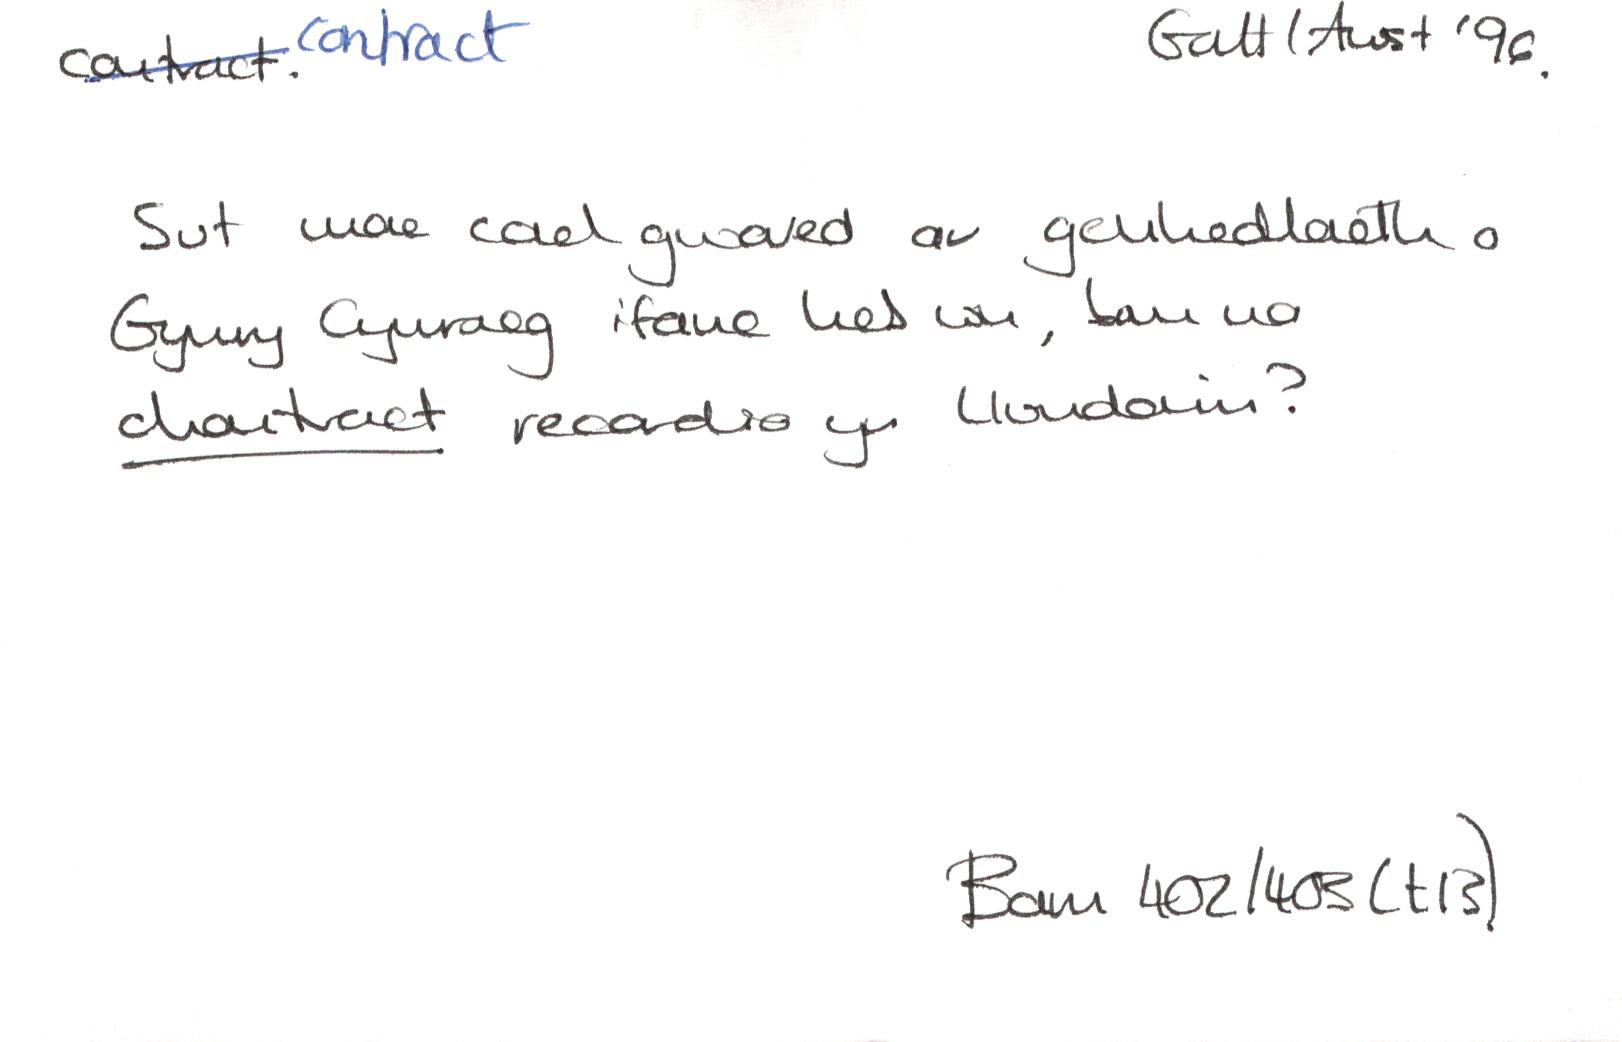 contract. contract Gatt/Awst '96.
Sut mae cael gwared ar genhedlaeth o
Gymry Cymraeg ifanc heb wn, bom na
chontract recordio yn Llundain?
Barn 402/403 (t13)